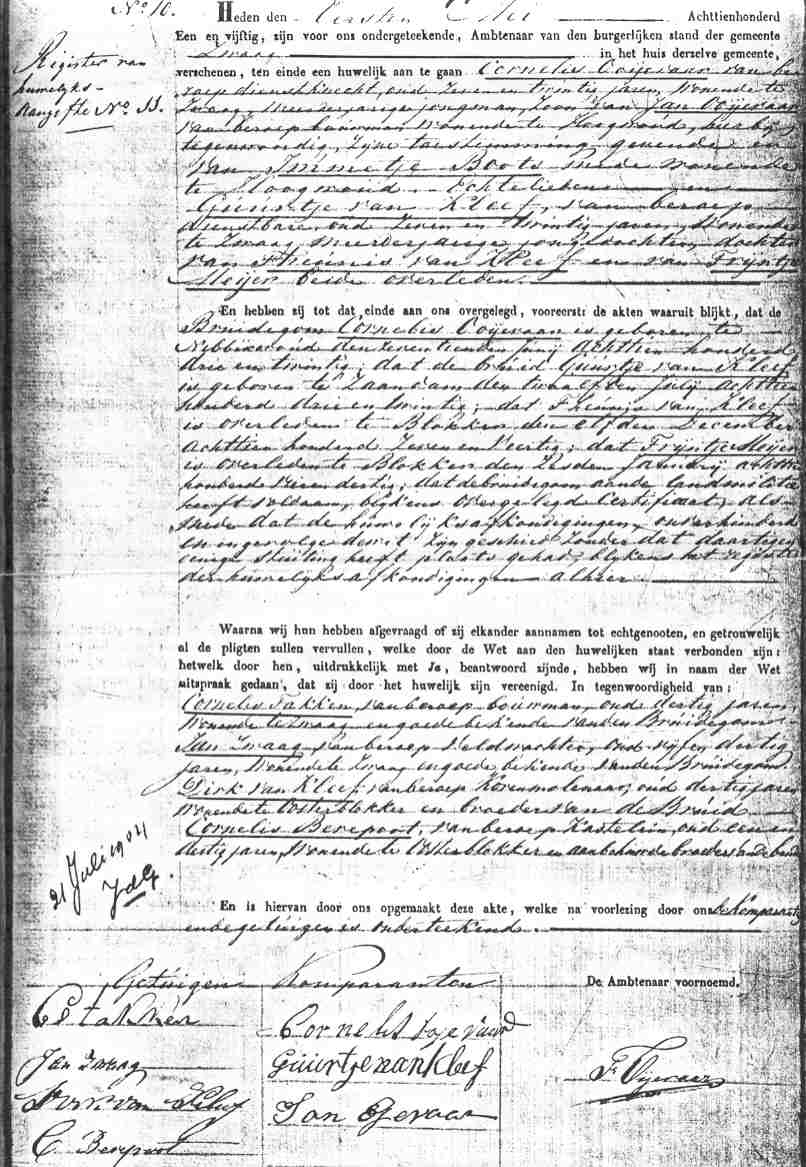 No 10.
Heden den Eersten Mei Achttienhonderd
Een en vijftig, zijn voor ons ondergeteekende, Ambtenaar van den burgerlijken stand der gemeente
Zwaag in het huis derzelve gemeente,
Register van
huwelijks-
No 33.
verschenen, ten einde een huwelijk aan te gaan Cornelis Ooijevaar van be
roep dienstknecht, oud Zeven en twintig jaren, wonende te
Zwaag, Meerderjarige jongman, Zoon van Jan Ooijevaar
van beroep bouwman wonende te Hoogwoud, hierbij
tegenwoordig, Zijne toestemming gevende en
van Immetje Boots mede wonende
te Hoogwoud Echtelieden en
Guurtje van Kleef, van beroep
dienstbare, oud Zeven en twintig jaren, Wonende
te Zwaag, meerderjarige jongedochter, dochter
van Theunis van Kleef en van Trijntje
Meijer beide overleden.
En hebben zij tot dat einde aan ons overgelegd, vooreerst: de akten waaruit blijkt, dat de
Bruidegom Cornelis Ooijevaar is geboren te
Nibbixwoud den zeventienden Junij Achttien honderd
drie en twintig; dat de bruid Guurtje van Kleef
is geboren te Zaandam den twaalfden July achttien
honderd drie en twintig; dat Theunis van Kleef
is overleden te Blokker den elfden December
Achttien honderd Zeven en Veertig; dat Trijntje Meijer
is overleden te Blokker den Zesden January achttien
honderd dertig; dat de bruidegom aan de landmilitie
heeft voldaan, blijkens overgelegd Certificaat; als
mede dat de huwelijksafkondigingen, onverhinderd
en ingevolge de wet zijn geschied zonder dat daartegen
eenige stuiting heeft plaats gehad, blijkens het register
der huwelijks afkondigingen alhier
Waarna wij hun hebben afgevraagd of zij elkander aannamen tot echtgenooten, en getrouwelijk
al de pligten zullen vervullen, welke door de Wet aan den huwelijken staat verbonden zijn:
hetwelk door hen, uitdrukkelijk met Ja, beantwoord zijnde, hebben wij in naam der Wet
uitspraak gedaan, dat zij door het huwelijk zijn vereenigd. In tegenwoordigheid van:
Cornelis Takken, van beroep bouwman, oud dertig jaren,
wonende te Zwaag en goede bekende van den Bruidegom
Jan Zwaag van beroep veldwachter, oud vijf en dertig
jaren, wonende te Zwaag en goede bekende van den Bruidegom
Dirk van Kleef van beroep Korenmolenaar, oud dertig jaren
wonende te Oosterblokker en broeder van de Bruid
Cornelis Berepoot, van beroep Kastelein, oud een en
dertig jaren, wonende te Oosterblokker en aanbehuwde broeder van de bruid
21 Juli 1904
En is hiervan door ons opgemaakt deze akte, welke na voorlezing door ons de Komparanten
en de getuigen is onderteekend.
Getuigen Komparanten De Ambtenaar voornoemd.
Jan Zwaag
Guurtje van Kleef
Dirk van Kleef
Jan Ojevaar
C Berepoot